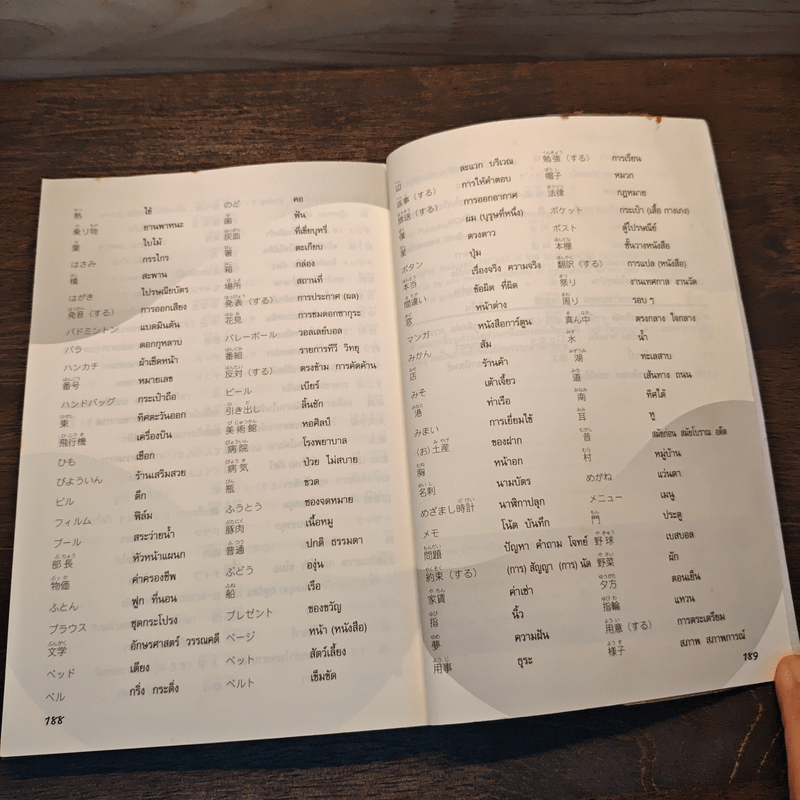 熱 ไข้
乗り物 ยานพาหนะ
葉 ใบไม้
はさみ กรรไกร
橋 สะพาน
はがき ไปรษณียบัตร
発音（する） การออกเสียง
バドミントン แบดมินตัน
バラ ดอกกุหลาบ
ハンカチ ผ้าเช็ดหน้า
番号 หมายเลข
ハンドバッグ กระเป๋าถือ
東 ทิศตะวันออก
飛行機 เครื่องบิน
ひも เชือก
びよういん ร้านเสริมสวย
ビル ตึก
フィルム ฟิล์ม
プール สระว่ายน้ำ
部長 หัวหน้าแผนก
物価 ค่าครองชีพ
ふとん ฟูก ที่นอน
ブラウス ชุดกระโปรง
文学 อักษรศาสตร์ วรรณคดี
ベッド เตียง
ベル กริ่ง กระดิ่ง
のど คอ
歯 ฟัน
灰皿 ที่เขี่ยบุหรี่
箸 ตะเกียบ
箱 กล่อง
場所 สถานที่
発表（する） การประกาศ (ผล)
花見 การชมดอกซากุระ
バレーボール วอลเลย์บอล
番組 รายการทีวี วิทยุ
反対（する） ตรงข้าม การคัดค้าน
ビール เบียร์
引き出し ลิ้นชัก
美術館 หอศิลป์
病院 โรงพยาบาล
病気 ป่วย ไม่สบาย
瓶 ขวด
ふうとう ซองจดหมาย
豚肉 เนื้อหมู
普通 ปกติ ธรรมดา
ぶどう องุ่น
船 เรือ
プレゼント ของขวัญ
ページ หน้า (หนังสือ)
ペット สัตว์เลี้ยง
ベルト เข็มขัด
188
ละแวก บริเวณ
返事（する） การให้คำตอบ
放送（する） การออกอากาศ
僕 ผม (บุรุษที่หนึ่ง)
星 ดวงดาว
ボタン ปุ่ม
本当 เรื่องจริง ความจริง
間違い ข้อผิด ที่ผิด
窓 หน้าต่าง
マンガ หนังสือการ์ตูน
みかん ส้ม
店 ร้านค้า
みそ เต้าเจี้ยว
港 ท่าเรือ
みまい การเยี่ยมไข้
(お)土産 ของฝาก
胸 หน้าอก
名刺 นามบัตร
めざまし時計 นาฬิกาปลุก
メモ โน้ต บันทึก
問題 ปัญหา คำถาม โจทย์
約束（する） (การ) สัญญา (การ) นัด
家賃 ค่าเช่า
指 นิ้ว
夢 ความฝัน
用事 ธุระ
勉強（する） การเรียน
帽子 หมวก
法律 กฎหมาย
ポケット กระเป๋า (เสื้อ กางเกง)
ポスト ตู้ไปรษณีย์
本棚 ชั้นวางหนังสือ
翻訳（する） การแปล (หนังสือ)
祭り งานเทศกาล งานวัด
周り รอบ ๆ
真ん中 ตรงกลาง ใจกลาง
水 น้ำ
湖 ทะเลสาบ
道 เส้นทาง ถนน
南 ทิศใต้
耳 หู
昔 สมัยก่อน สมัยโบราณ อดีต
村 หมู่บ้าน
めがね แว่นตา
メニュー เมนู
門 ประตู
野球 เบสบอล
野菜 ผัก
夕方 ตอนเย็น
指輪 แหวน
用意（する） การตระเตรียม
様子 สภาพ สภาพการณ์
189